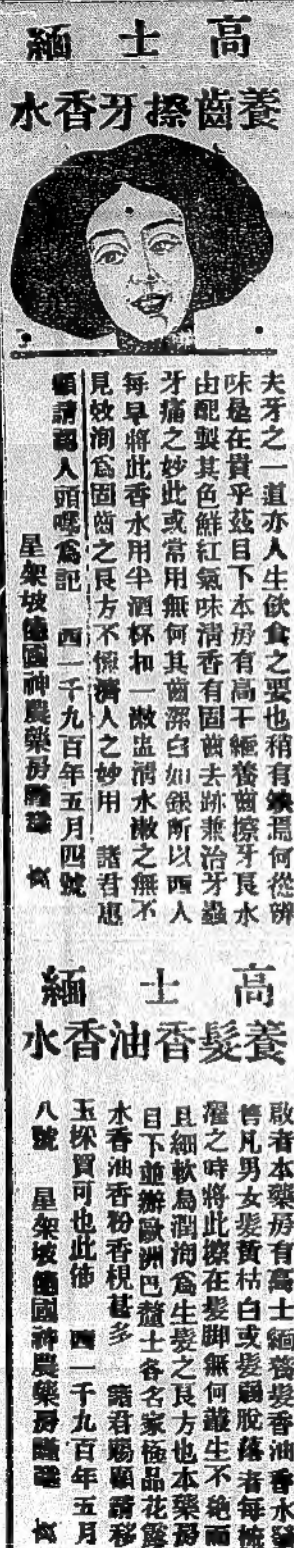 高士緬
養齒擦牙香水
夫牙之一道亦人生飲食之要也稍有焉何從辨
味是在貴乎茲目下本房有高士緬養齒擦牙良水
由配製其色鮮紅氣味清香有固齒去跡兼治牙蟲
牙痛之妙此或常用無何其齒潔白如銀所以西人
每早將此香水用半酒杯和一漱盅清水漱之無不
見效洵為固齒之良方不愧濟人之妙用 諸君惠
顧請認人頭嘜為記 西一千九百年五月四號
星架坡德國神農藥房謹
高士緬
養髮香油香水
啟者本藥房有高士緬養髮香油香水
凡男女髮黃枯白或髮弱脫落者每梳
濯之時將此擦在髮脚無何叢生不絕而
且細軟烏潤洵為生髮之良方也本藥房
目下並辦歐洲巴黎士各名家極品花露
水香油香粉香梘甚多 諸君賜顧請移
玉採買可也此佈 西一千九百年五月
八號 星架坡德國神農藥房謹